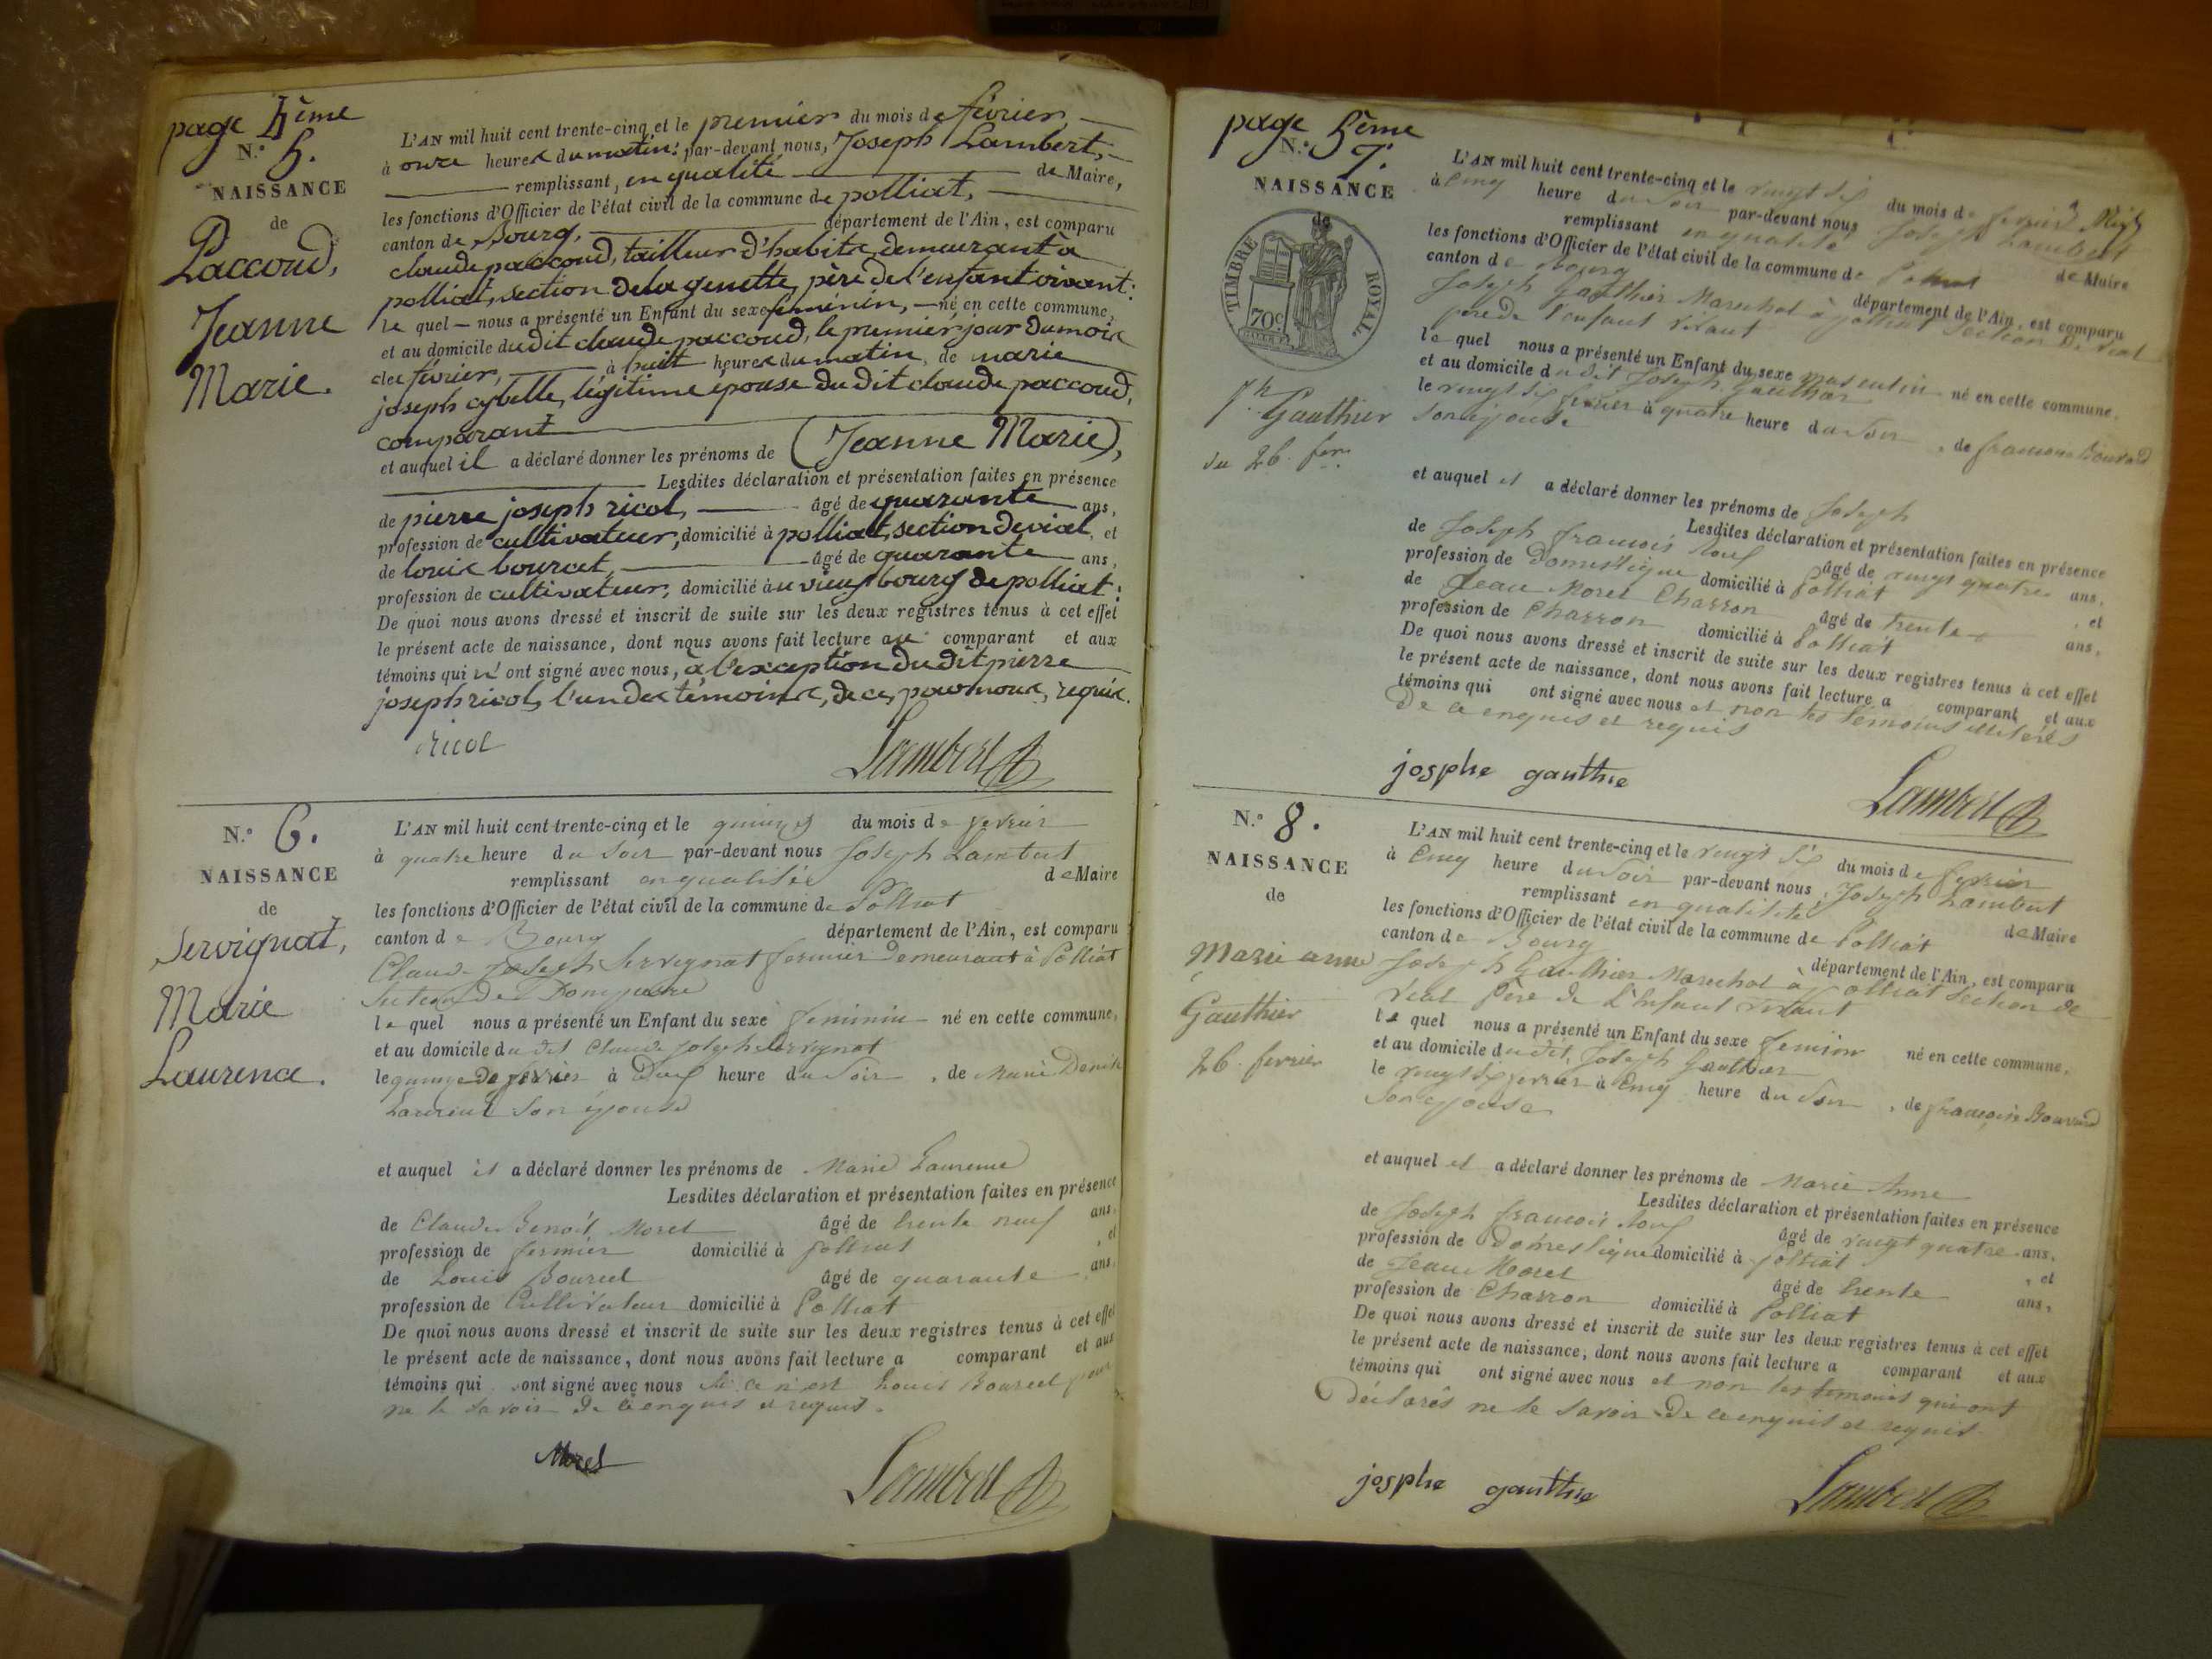 page 4ème
N.° 5.
NAISSANCE
de
Paccoud,
Jeanne
Marie.
L'AN mil huit cent trente-cinq et le premier du mois de février,
à onze heures du matin: par-devant nous, Joseph Lambert,
remplissant, en qualité de Maire,
les fonctions d'Officier de l'état civil de la commune de polliat,
canton de Bourg, département de l'Ain, est comparu
claude paccoud, tailleur d'habits, demeurant à
polliat, section de la genette, père de l'enfant vivant:
le quel nous a présenté un Enfant du sexe féminin, né en cette commune,
et au domicile du dit claude paccoud, le premier jour du mois
de février, à huit heures du matin, de marie
joseph cybelle, légitime épouse du dit claude paccoud,
comparant
et auquel il a déclaré donner les prénoms de (Jeanne Marie),
Lesdites déclaration et présentation faites en présence
de pierre joseph ricol, âgé de quarante ans,
profession de cultivateur, domicilié à polliat, section de vial, et
de louis bourcet, âgé de quarante ans,
profession de cultivateur, domicilié au vieux bourg de polliat:
De quoi nous avons dressé et inscrit de suite sur les deux registres tenus à cet effet
le présent acte de naissance, dont nous avons fait lecture aux comparant et aux
témoins qui n' ont signé avec nous, à l'exception du dit pierre
joseph ricol, l'un des témoins, de ce, par nous, requis.
ricol
Lambert
N.° 6.
NAISSANCE
de
Servignat,
Marie
Laurence.
L'AN mil huit cent trente-cinq et le quinze du mois de fevrier
à quatre heure du soir par-devant nous Joseph Lambert
remplissant en qualité de Maire
les fonctions d'Officier de l'état civil de la commune de Polliat
canton de Bourg département de l'Ain, est comparu
Claude Joseph Servignat fermier demeurant à Polliat
Section de Dompierre
le quel nous a présenté un Enfant du sexe feminin né en cette commune,
et au domicile du dit Claude Joseph Servignat
le quinze de fevrier à deux heure du soir, de Marie Denise
Laurent son épouse
et auquel il a déclaré donner les prénoms de Marie Laurence
Lesdites déclaration et présentation faites en présence
de Claude Benoît Morel âgé de trente neuf ans,
profession de fermier domicilié à polliat, et
de Louis Bourcet âgé de quarante ans,
profession de Cultivateur domicilié à Polliat
De quoi nous avons dressé et inscrit de suite sur les deux registres tenus à cet effet
le présent acte de naissance, dont nous avons fait lecture a comparant et aux
témoins qui ont signé avec nous si ce n'est Louis Bourcet pour
ne le savoir de ce enquis et requis.
Morel
Lambert
page 5ème
N.° 7.
NAISSANCE
de
TIMBRE ROYAL
70c
Jh Gauthier
du 26 fer
L'AN mil huit cent trente-cinq et le vingt six du mois de fevrier
à cinq heure du soir par-devant nous Joseph Lambert
remplissant en qualité de Maire
les fonctions d'Officier de l'état civil de la commune de Polliat
canton de Bourg département de l'Ain, est comparu
Joseph Gauthier Marechal à polliat Section de Vial
père de l'enfant vivant
le quel nous a présenté un Enfant du sexe masculin né en cette commune.
et au domicile du dit Joseph Gauthier
le vingt six fevrier à quatre heure du soir, de françoise Bouvard
son épouse
et auquel il a déclaré donner les prénoms de Joseph
Lesdites déclaration et présentation faites en présence
de Joseph françois âgé de vingt quatre ans,
profession de Domestique domicilié à Polliat, et
de Jean Morel Charron âgé de trente ans,
profession de Charron domicilié à Polliat
De quoi nous avons dressé et inscrit de suite sur les deux registres tenus à cet effet
le présent acte de naissance, dont nous avons fait lecture a comparant et aux
témoins qui ont signé avec nous et non les témoins illiterés
De ce enquis et requis
josphe gauthie
Lambert
N.° 8.
NAISSANCE
de
Marie anne
Gauthier
26. fevrier
L'AN mil huit cent trente-cinq et le vingt six du mois de fevrier
à cinq heure du soir par-devant nous, Joseph Lambert
remplissant en qualité de Maire
les fonctions d'Officier de l'état civil de la commune de Polliat
canton de Bourg département de l'Ain, est comparu
Joseph Gauthier Marechal à polliat Section de
Vial père de l'enfant vivant
le quel nous a présenté un Enfant du sexe feminin né en cette commune,
et au domicile du dit Joseph Gauthier
le vingt six fevrier à cinq heure du soir, de françoise Bouvard
son épouse
et auquel il a déclaré donner les prénoms de Marie Anne
Lesdites déclaration et présentation faites en présence
de Joseph françois âgé de vingt quatre ans,
profession de Domestique domicilié à polliat, et
de Jean Morel âgé de trente ans,
profession de Charron domicilié à Polliat
De quoi nous avons dressé et inscrit de suite sur les deux registres tenus à cet effet
le présent acte de naissance, dont nous avons fait lecture a comparant et aux
témoins qui ont signé avec nous et non les temoins qui ont
Déclarés ne le savoir de ce enquis et requis
josphe gauthie
Lambert